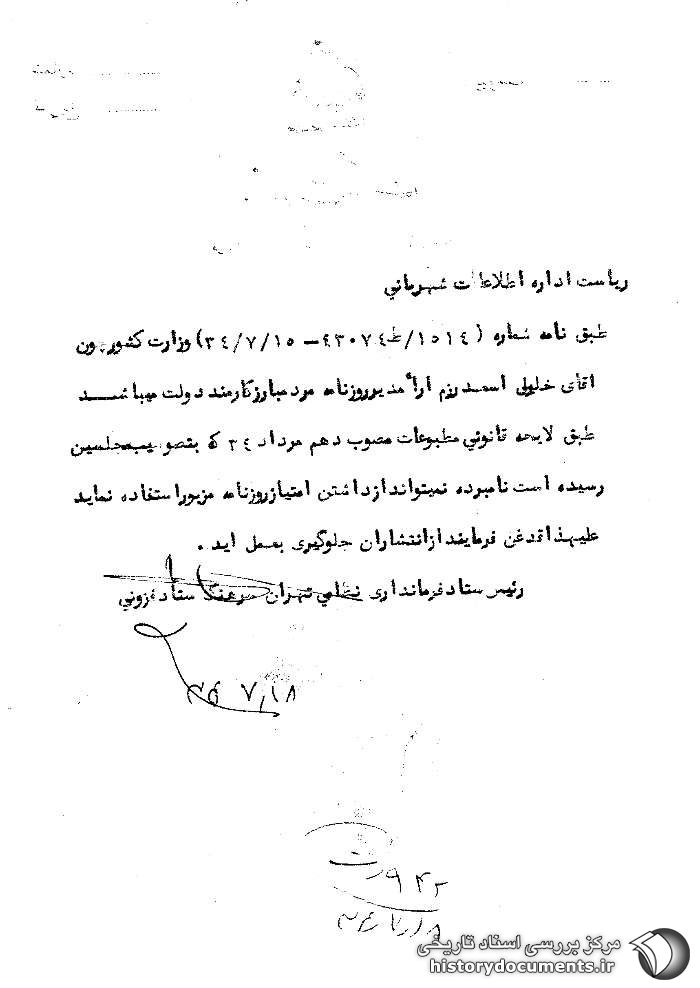 شماره
تاریخ
پیوست
ریاست اداره اطلاعات شهربانی
طبق نامه شماره (۱۵۱۴/ط۹۳۰۷۴ – ۳۴/۷/۱۵) وزارت کشور چون
آقای خلیلی اسعد رزم آرا مدیر روزنامه مرد مبارز کارمند دولت میباشد
طبق لایحه قانونی مطبوعات مصوب دهم مرداد ۳۴ که بتصویب مجلسین
رسیده است نامبرده نمیتواند از داشتن امتیاز روزنامه مزبور استفاده نماید
علیهذا قدغن فرمایند از انتشار آن جلوگیری بعمل اید .
رئیس ستاد فرمانداری نظامی تهران سرهنگ ستاد قزونی
۳۴ ۷/۱۸
۹۴۲
مرکز بررسی اسناد تاریخی
historydocuments.ir